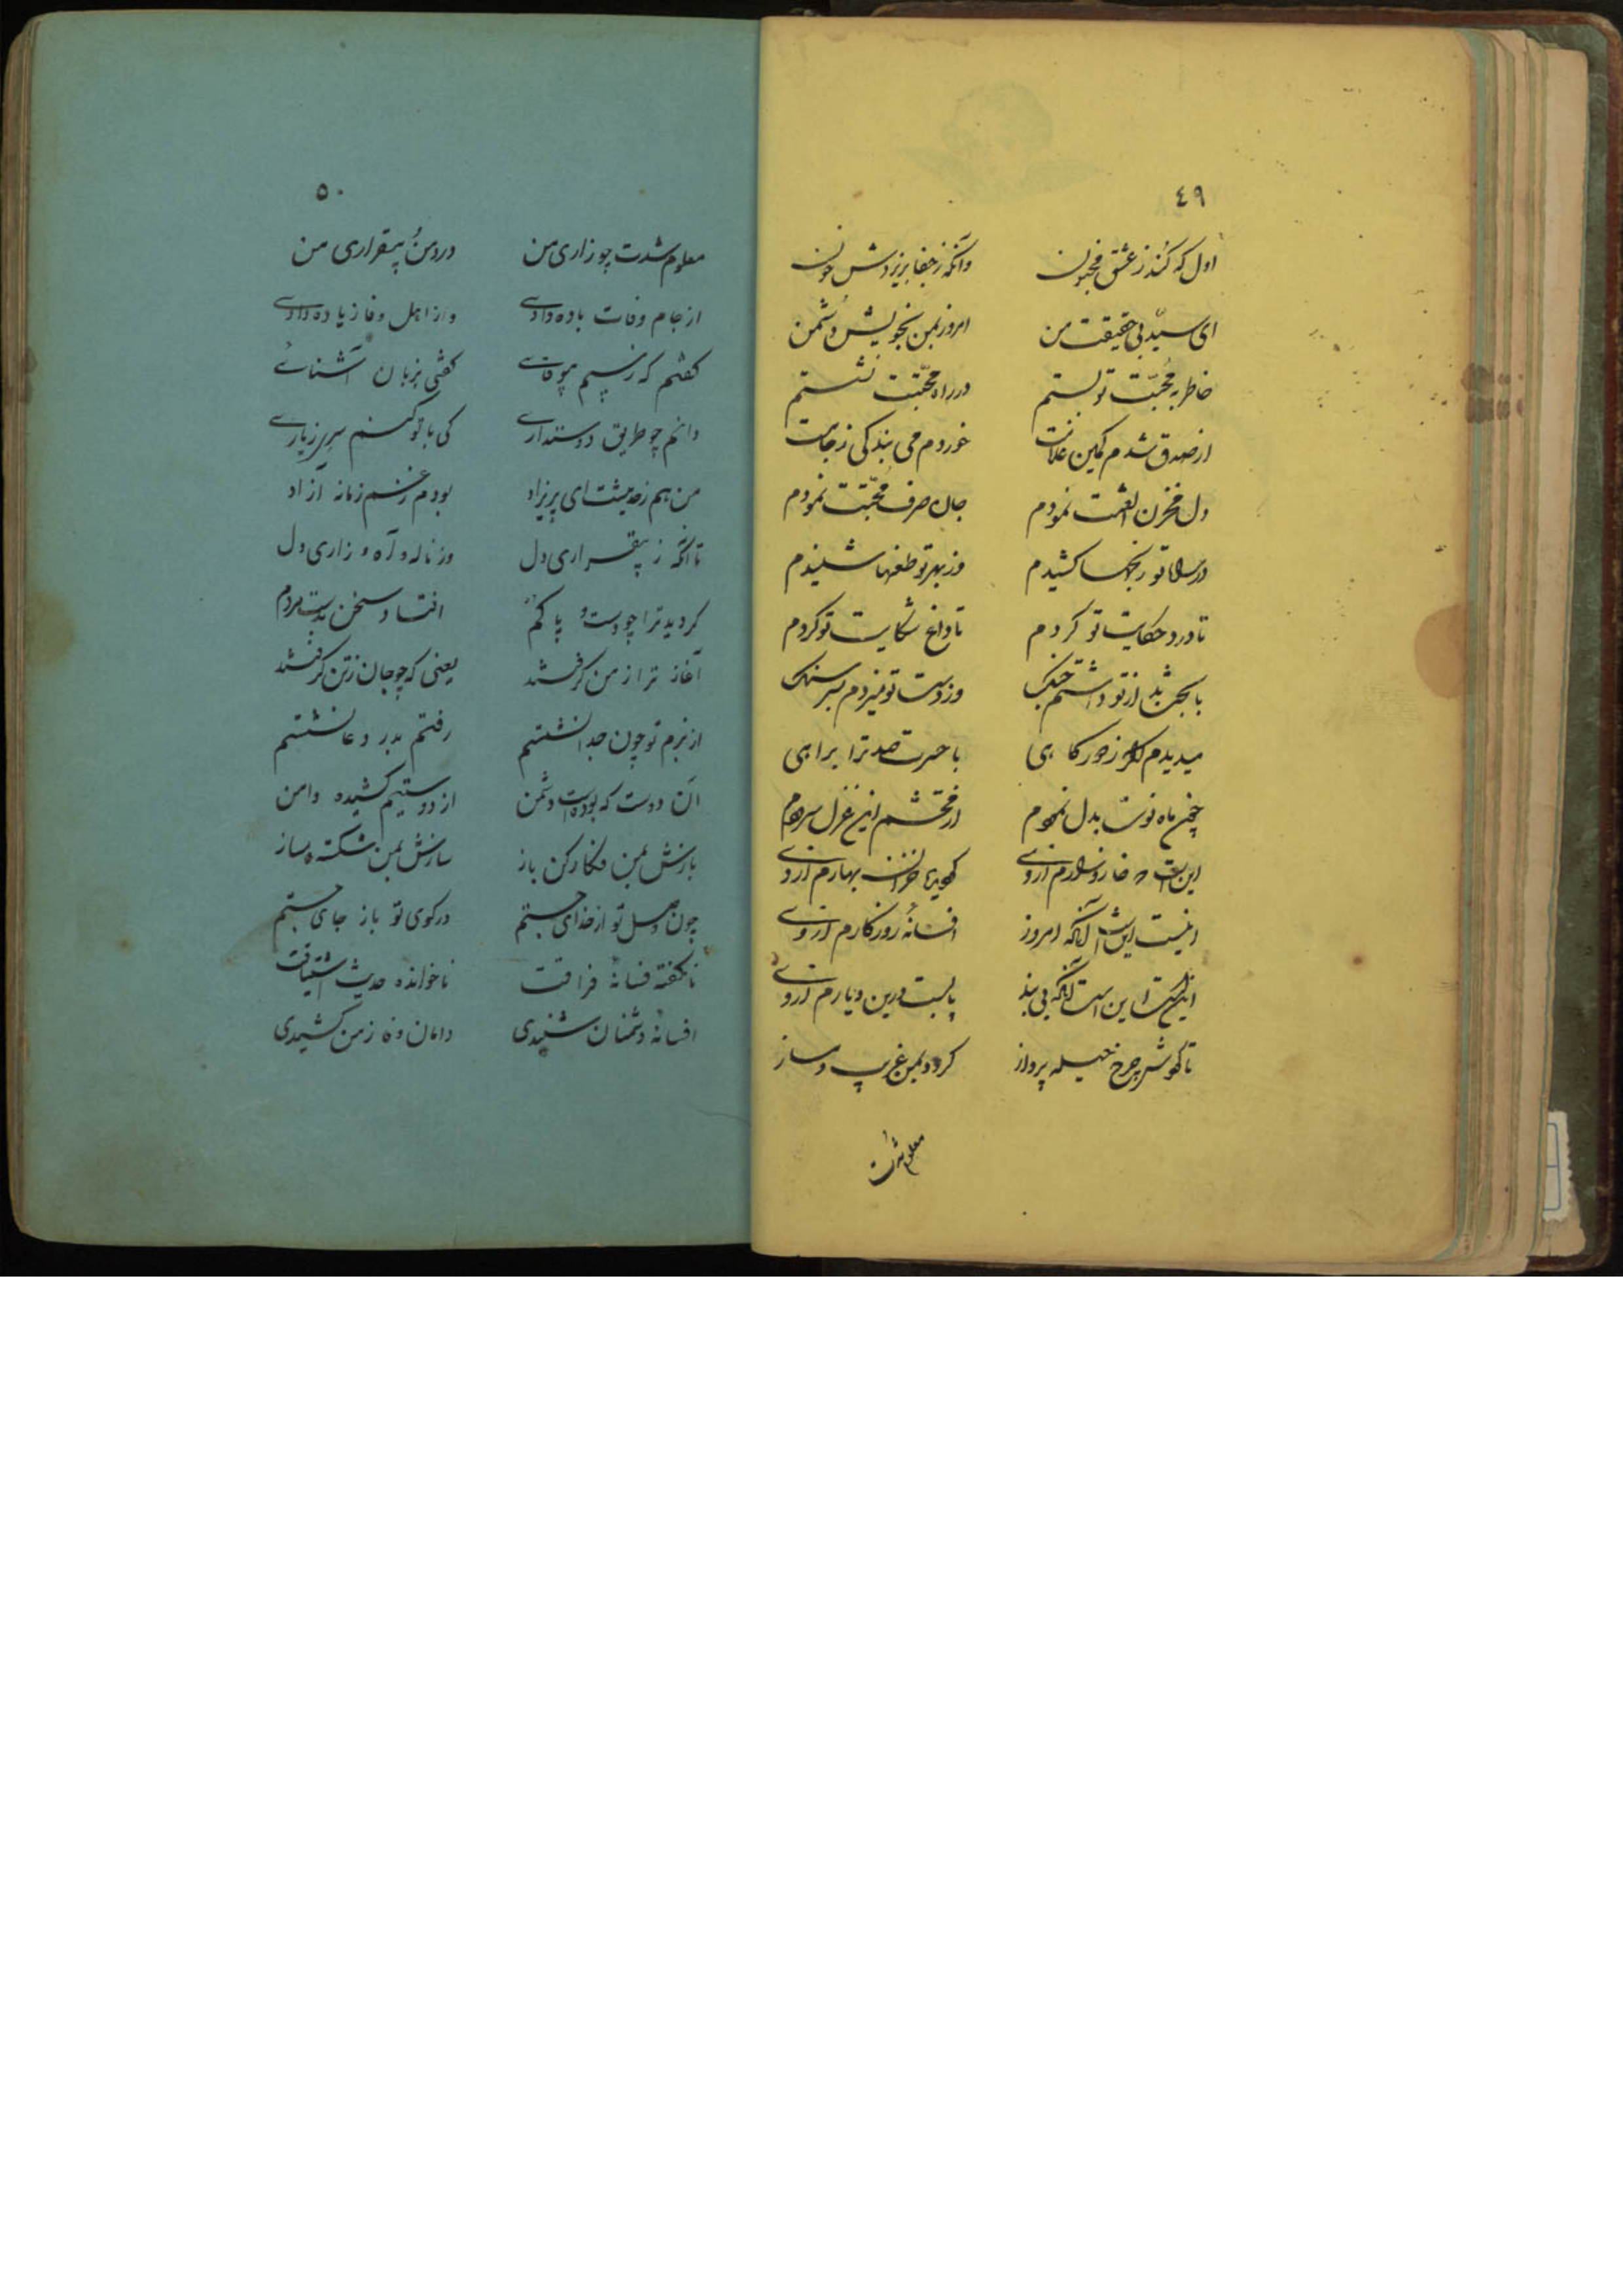 ٤٩
اول که کُند ز عشق مجنون وانگه ز جفا بریزدش خون
ای سید بی حقیقت من امروز بمن بخویش دشمن
خاطر به محبّت تو بستم در راه محبّت نشستم
از صدق شدم کمین غلامت خوردم می بندگی ز جامت
دل مخزن الفتت نمودم جان صرف محبّتت نمودم
تو رنجها کشیدم وز بهر تو طعنها شنیدم
تا درد حکایت تو کردم تا داغ شکایت تو کردم
از تو داشتم جنگ وز دست تو میزدم بسر سنگ
میدیدم اگر ز دور گاهی با حسرت صد ترا براهی
ماه نوت بدل نمودم از محتشم این غزل سرودم
این است که خار و زارم از وی خزان بهارم از وی
اینست این است آنکه امروز افسانهٔ روزگارم از وی
این است این است آنکه بی بند پا بست درین دیارم از وی
تا گوش چرخ حیله پرداز کردد بمن غریب دمساز
معلوم شدت
٥٠
معلوم شدت چو زاری من درد من و بیقراری من
از جام وفات باده دادی واز اهل وفا زیاده دادی
گفتم که رسیم گفتی بزبان آشنائی
دانم چو طریق دوستداری کی با تو کنم
من هم ز حدیثت ای پریزاد بودم ز غم زمانه آزاد
تا آنکه ز بیقراری دل وز ناله و آه و زاری دل
گردید ترا چو دست و پا گم افتاد سخن بدست مردم
آغاز ترا ز من گرفتند یعنی که چو جان ز تن گرفتند
از بزم تو چون جدا نشستم رفتم بدر دعا نشستم
آن دوست که بوده است دشمن از دوستیم کشیده دامن
بازش بمن فکار کن باز سازش بمن شکسته دمساز
چون وصل تو از خدای جستم در کوی تو باز جای جستم
ناگفته فسانهٔ فراقت ناخوانده حدیث اشتیاقت
افسانهٔ دشمنان شنیدی دامان وفا ز من کشیدی